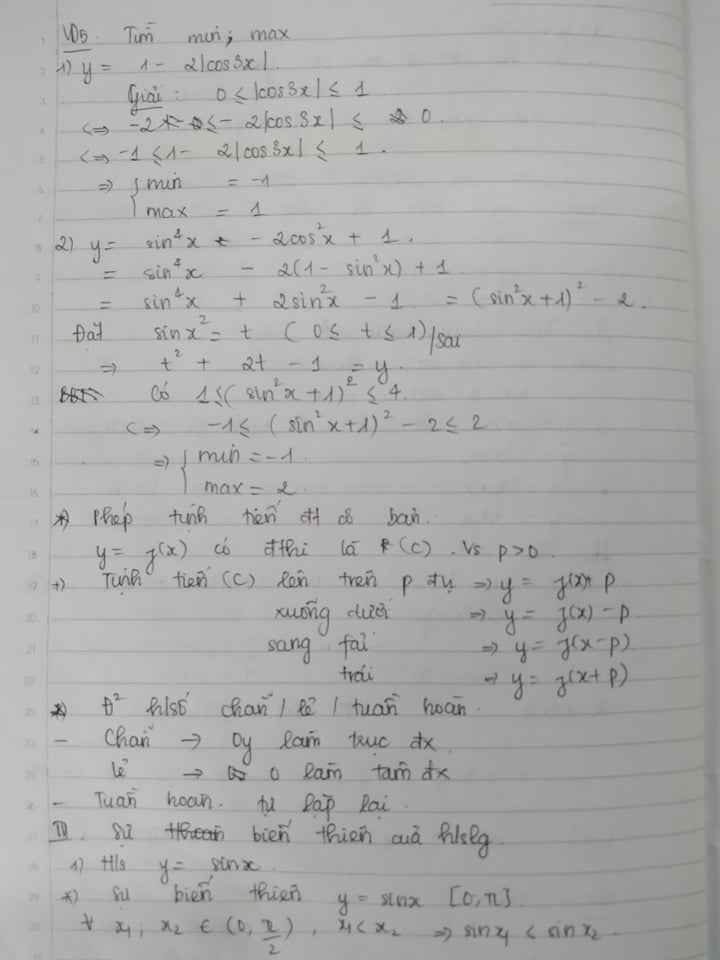 VD5. Tìm min, max
1) y = 1 - 2|cos3x|.
Giải: 0 ≤ |cos3x| ≤ 1
<=> -2 ≤ - 2|cos3x| ≤ 0.
<=> -1 ≤ 1 - 2|cos3x| ≤ 1.
=> { min = -1
max = 1
2) y = sin⁴x - 2cos²x + 1.
= sin⁴x - 2(1 - sin²x) + 1
= sin⁴x + 2sin²x - 1 = (sin²x + 1)² - 2.
Đặt sinx² = t (0 ≤ t ≤ 1) / sai
=> t² + 2t - 1 = y.
Có 1 ≤ (sin²x + 1)² ≤ 4.
<=> -1 ≤ (sin²x + 1)² - 2 ≤ 2
=> { min = -1
max = 2
*) Phép tịnh tiến đt cơ bản.
y = f(x) có đthị là (C). Vs p > 0.
+) Tịnh tiến (C) lên trên p đvị => y = f(x) + p
xuống dưới => y = f(x) - p
sang fải => y = f(x - p)
trái => y = f(x + p)
*) Đ² h/số chẵn / lẻ / tuần hoàn.
- Chẵn → Oy làm trục đx
lẻ → O làm tâm đx
- Tuần hoàn. tự lặp lại
III. Sự biến thiên của hslg
1) H/s y = sinx.
*) Sự biến thiên y = sinx [0, π]
∀ x₁; x₂ ∈ (0, π/2), x₁ < x₂ => sinx₁ < sinx₂